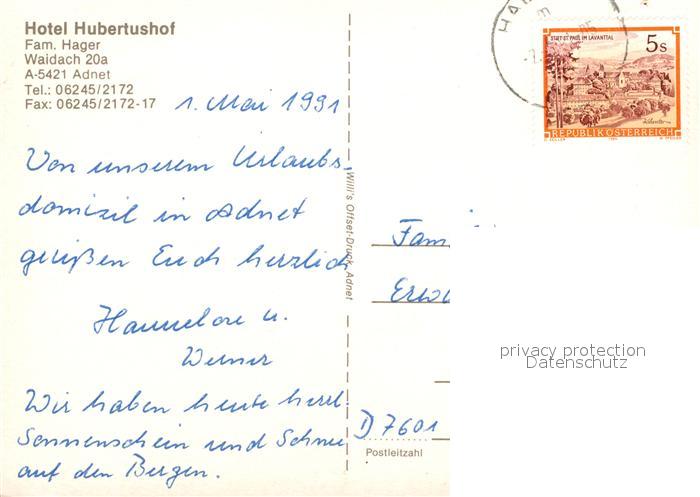 Hotel Hubertushof
Fam. Hager
Waidach 20a
A-5421 Adnet
Tel.: 06245/2172
Fax: 06245/2172-17
1. Mai 1991
Von unserem Urlaubs-
domizil in Adnet
grüßen Euch herzlich
Hannelore u.
Werner
Wir haben heute herrl.
Sonnenschein und Schnee
auf den Bergen.
Willi's Offset-Druck, Adnet
STIFT ST. PAUL IM LAVANTTAL
5s
REPUBLIK ÖSTERREICH
HA
Fam
Erw
privacy protection
Datenschutz
D 7601
Postleitzahl